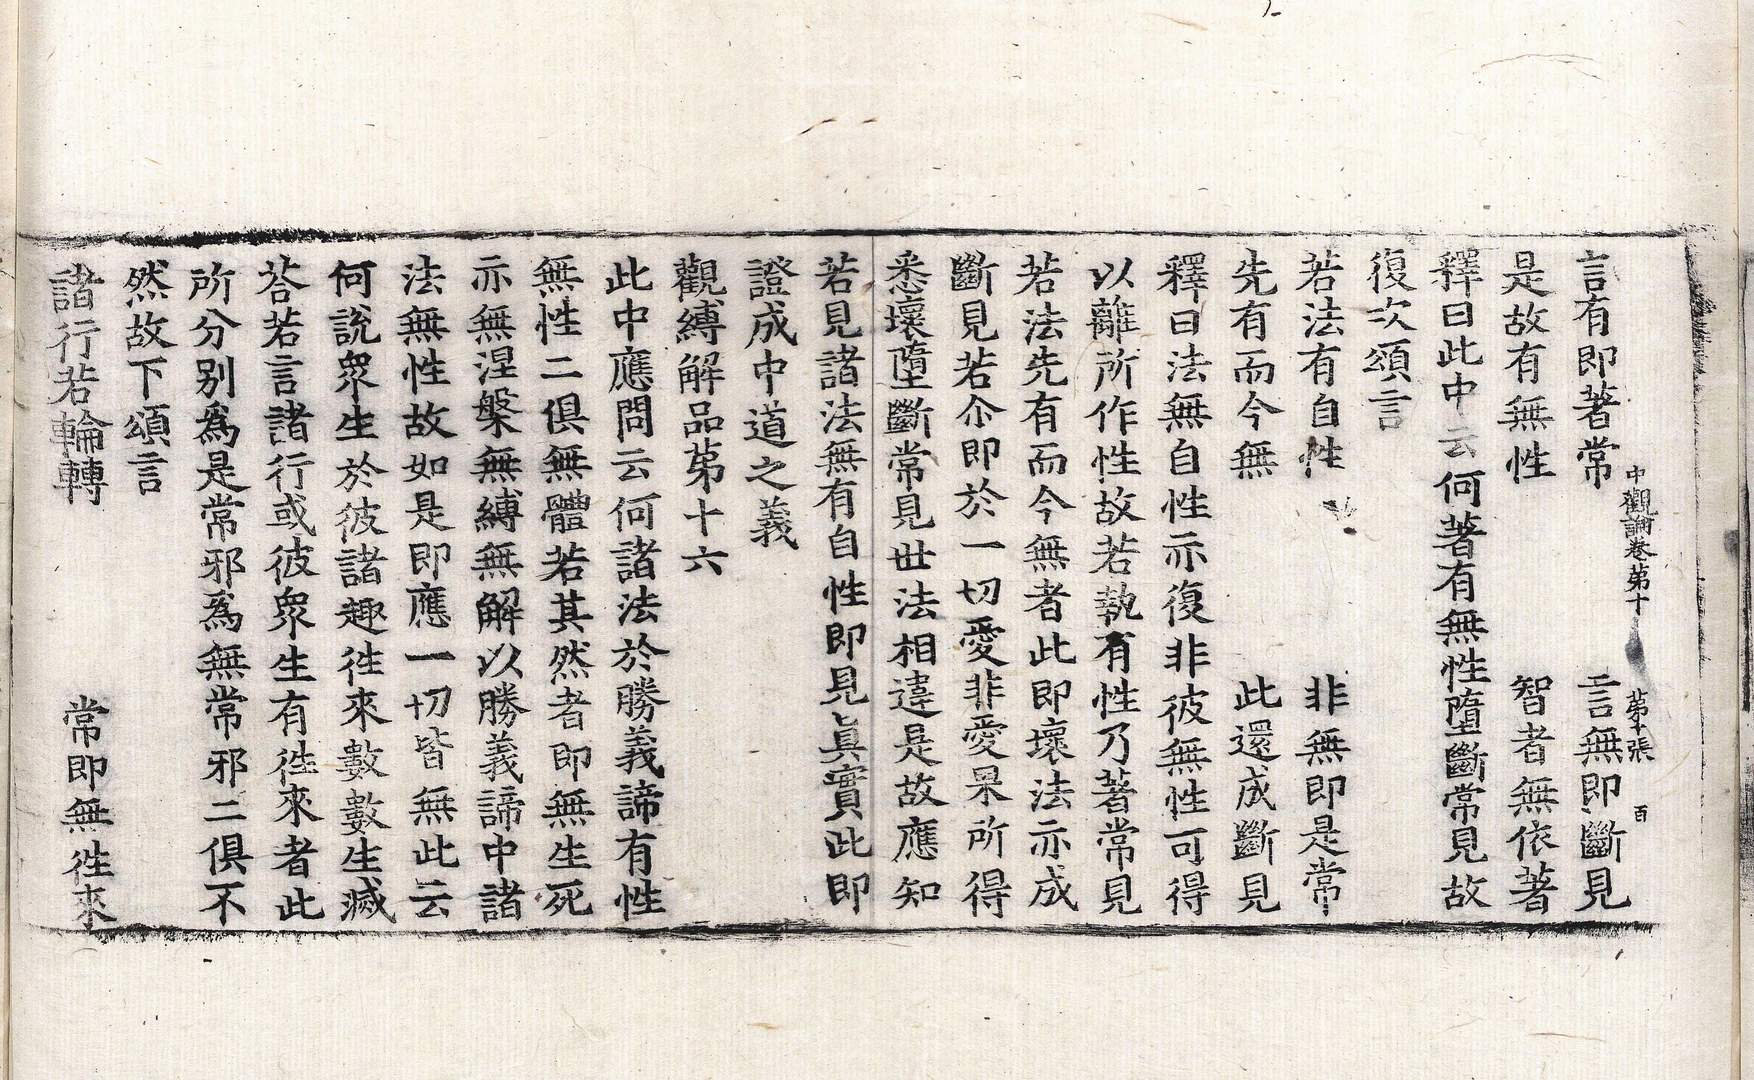 中觀論卷第十　第十張　百
言有即著常　言無即斷見
是故有無性　智者無依著
釋曰此中云何著有無性墮斷常見故
復次頌言
若法有自性　非無即是常
先有而今無　此還成斷見
釋曰法無自性亦復非彼無性可得
以離所作性故若執有性乃著常見
若法先有而今無者此即壞法亦成
斷見若尒即於一切愛非愛果所得
悉壞墮斷常見世法相違是故應知
若見諸法無有自性即見眞實此即
證成中道之義
觀縛解品第十六
此中應問云何諸法於勝義諦有性
無性二俱無體若其然者即無生死
亦無涅槃無縛無解以勝義諦中諸
法無性故如是即應一切皆無此云
何說衆生於彼諸趣徃來數數生滅
荅若言諸行或彼衆生有徃來者此
所分別爲是常邪爲無常邪二俱不
然故下頌言
諸行若輪轉　常即無徃來